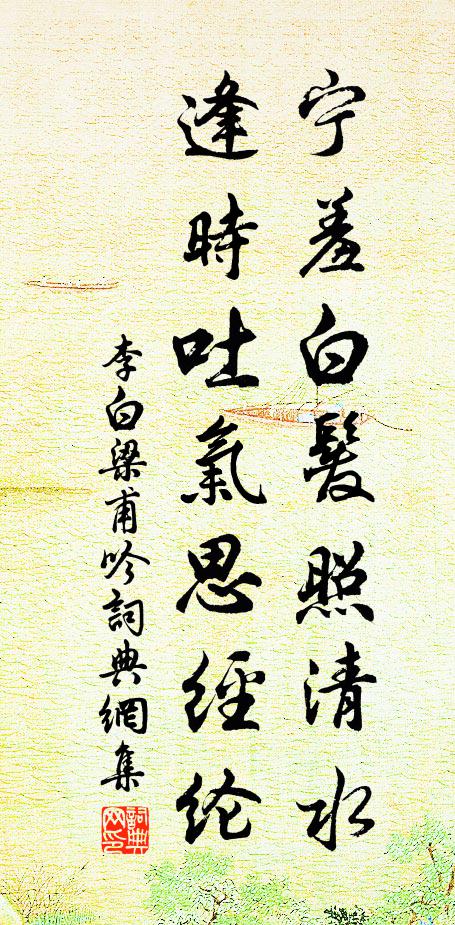 宁羞白髮照清水
逢時吐氣思經纶
李白梁甫吟詞典網集
詞典网印